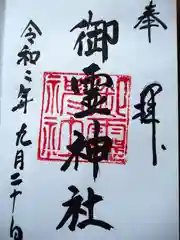 奉拝
御霊神社
令和二年九月二十日